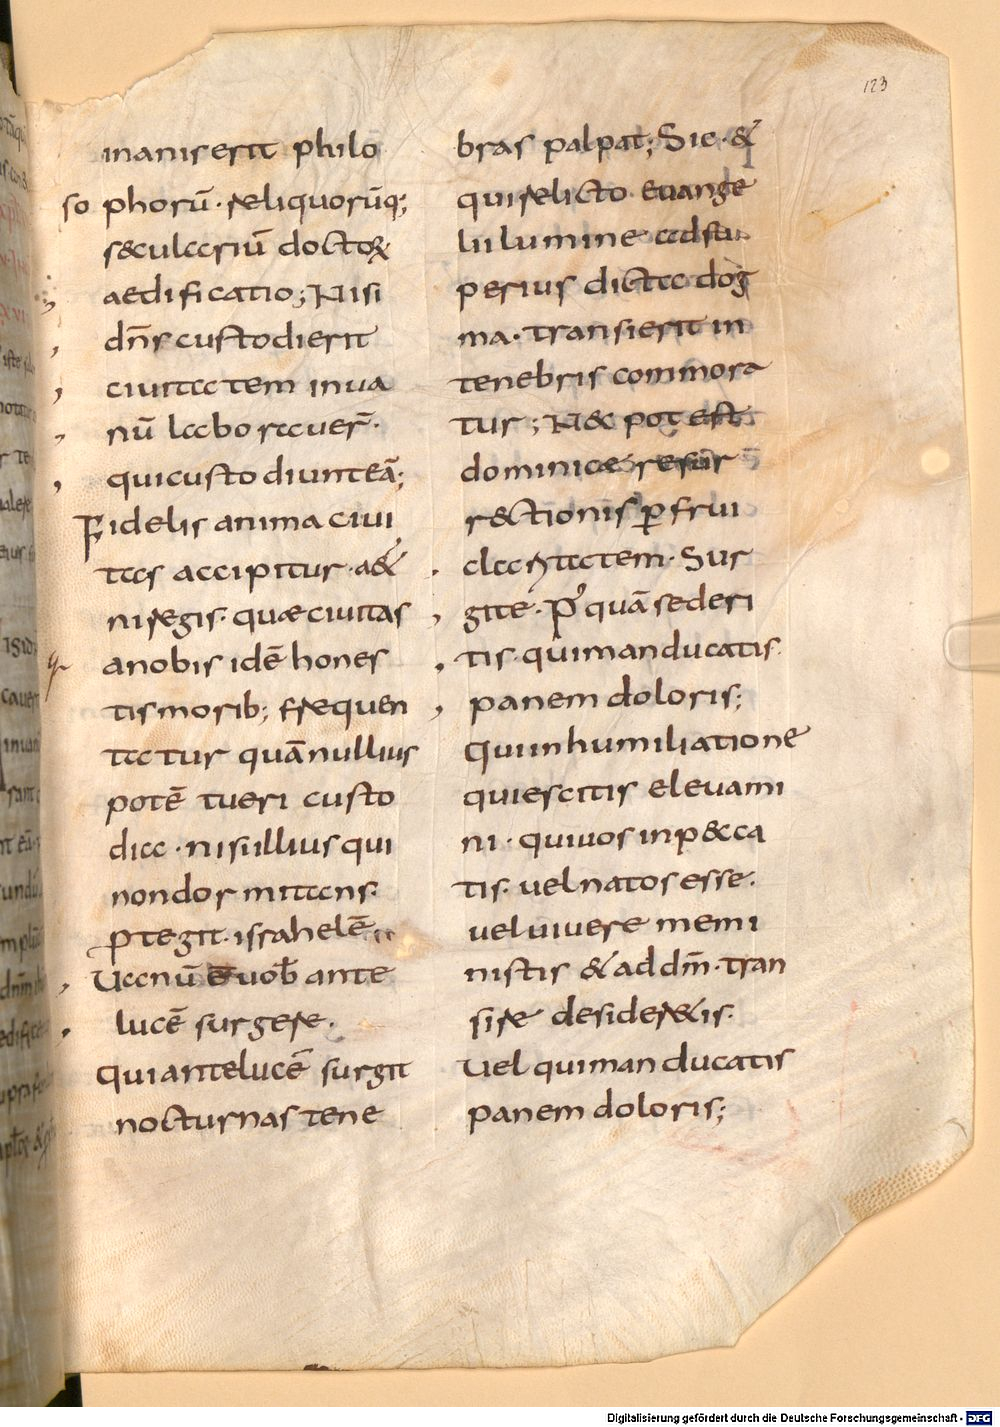 123
inanis erit philo
so phorū. reliquorūq;
sæculariū doctoꝝ
aedificatio; Nisi
dn̄s custodierit
ciuitatem inua
nū laborauer̄.
qui custodiunt eā;
Fidelis anima ciui
tas accipitur. a&er
ni regis. quæ ciuitas
a nobis idē hones
tis morib; frequen
tatur quā nullius
potē tueri custo
dia. nisi illius qui
non dormitans.
ꝑtegit. israhelē
Uanū ē uob̄ ante
lucē surgere.
Qui ante lucē surgit
nocturnas tene
bras palpat; Sic. &
qui relicto euange
lii lumine ad su
perius dicta dog
ma. transierit in
tenebris commora
tur; N& potest
dominicae resur
r&ctionis ꝑfrui
claritatem. Sur
gite. P' quā sederi
tis. qui manducatis
panem doloris;
Qui in humiliatione
quiescitis eleuami
ni. qui uos in p&cca
tis. uel natos esse.
uel uiuere memi
nistis & ad dm̄. tran
sire desider&is.
Uel qui manducatis
panem doloris;
Digitalisierung gefördert durch die Deutsche Forschungsgemeinschaft - DFG